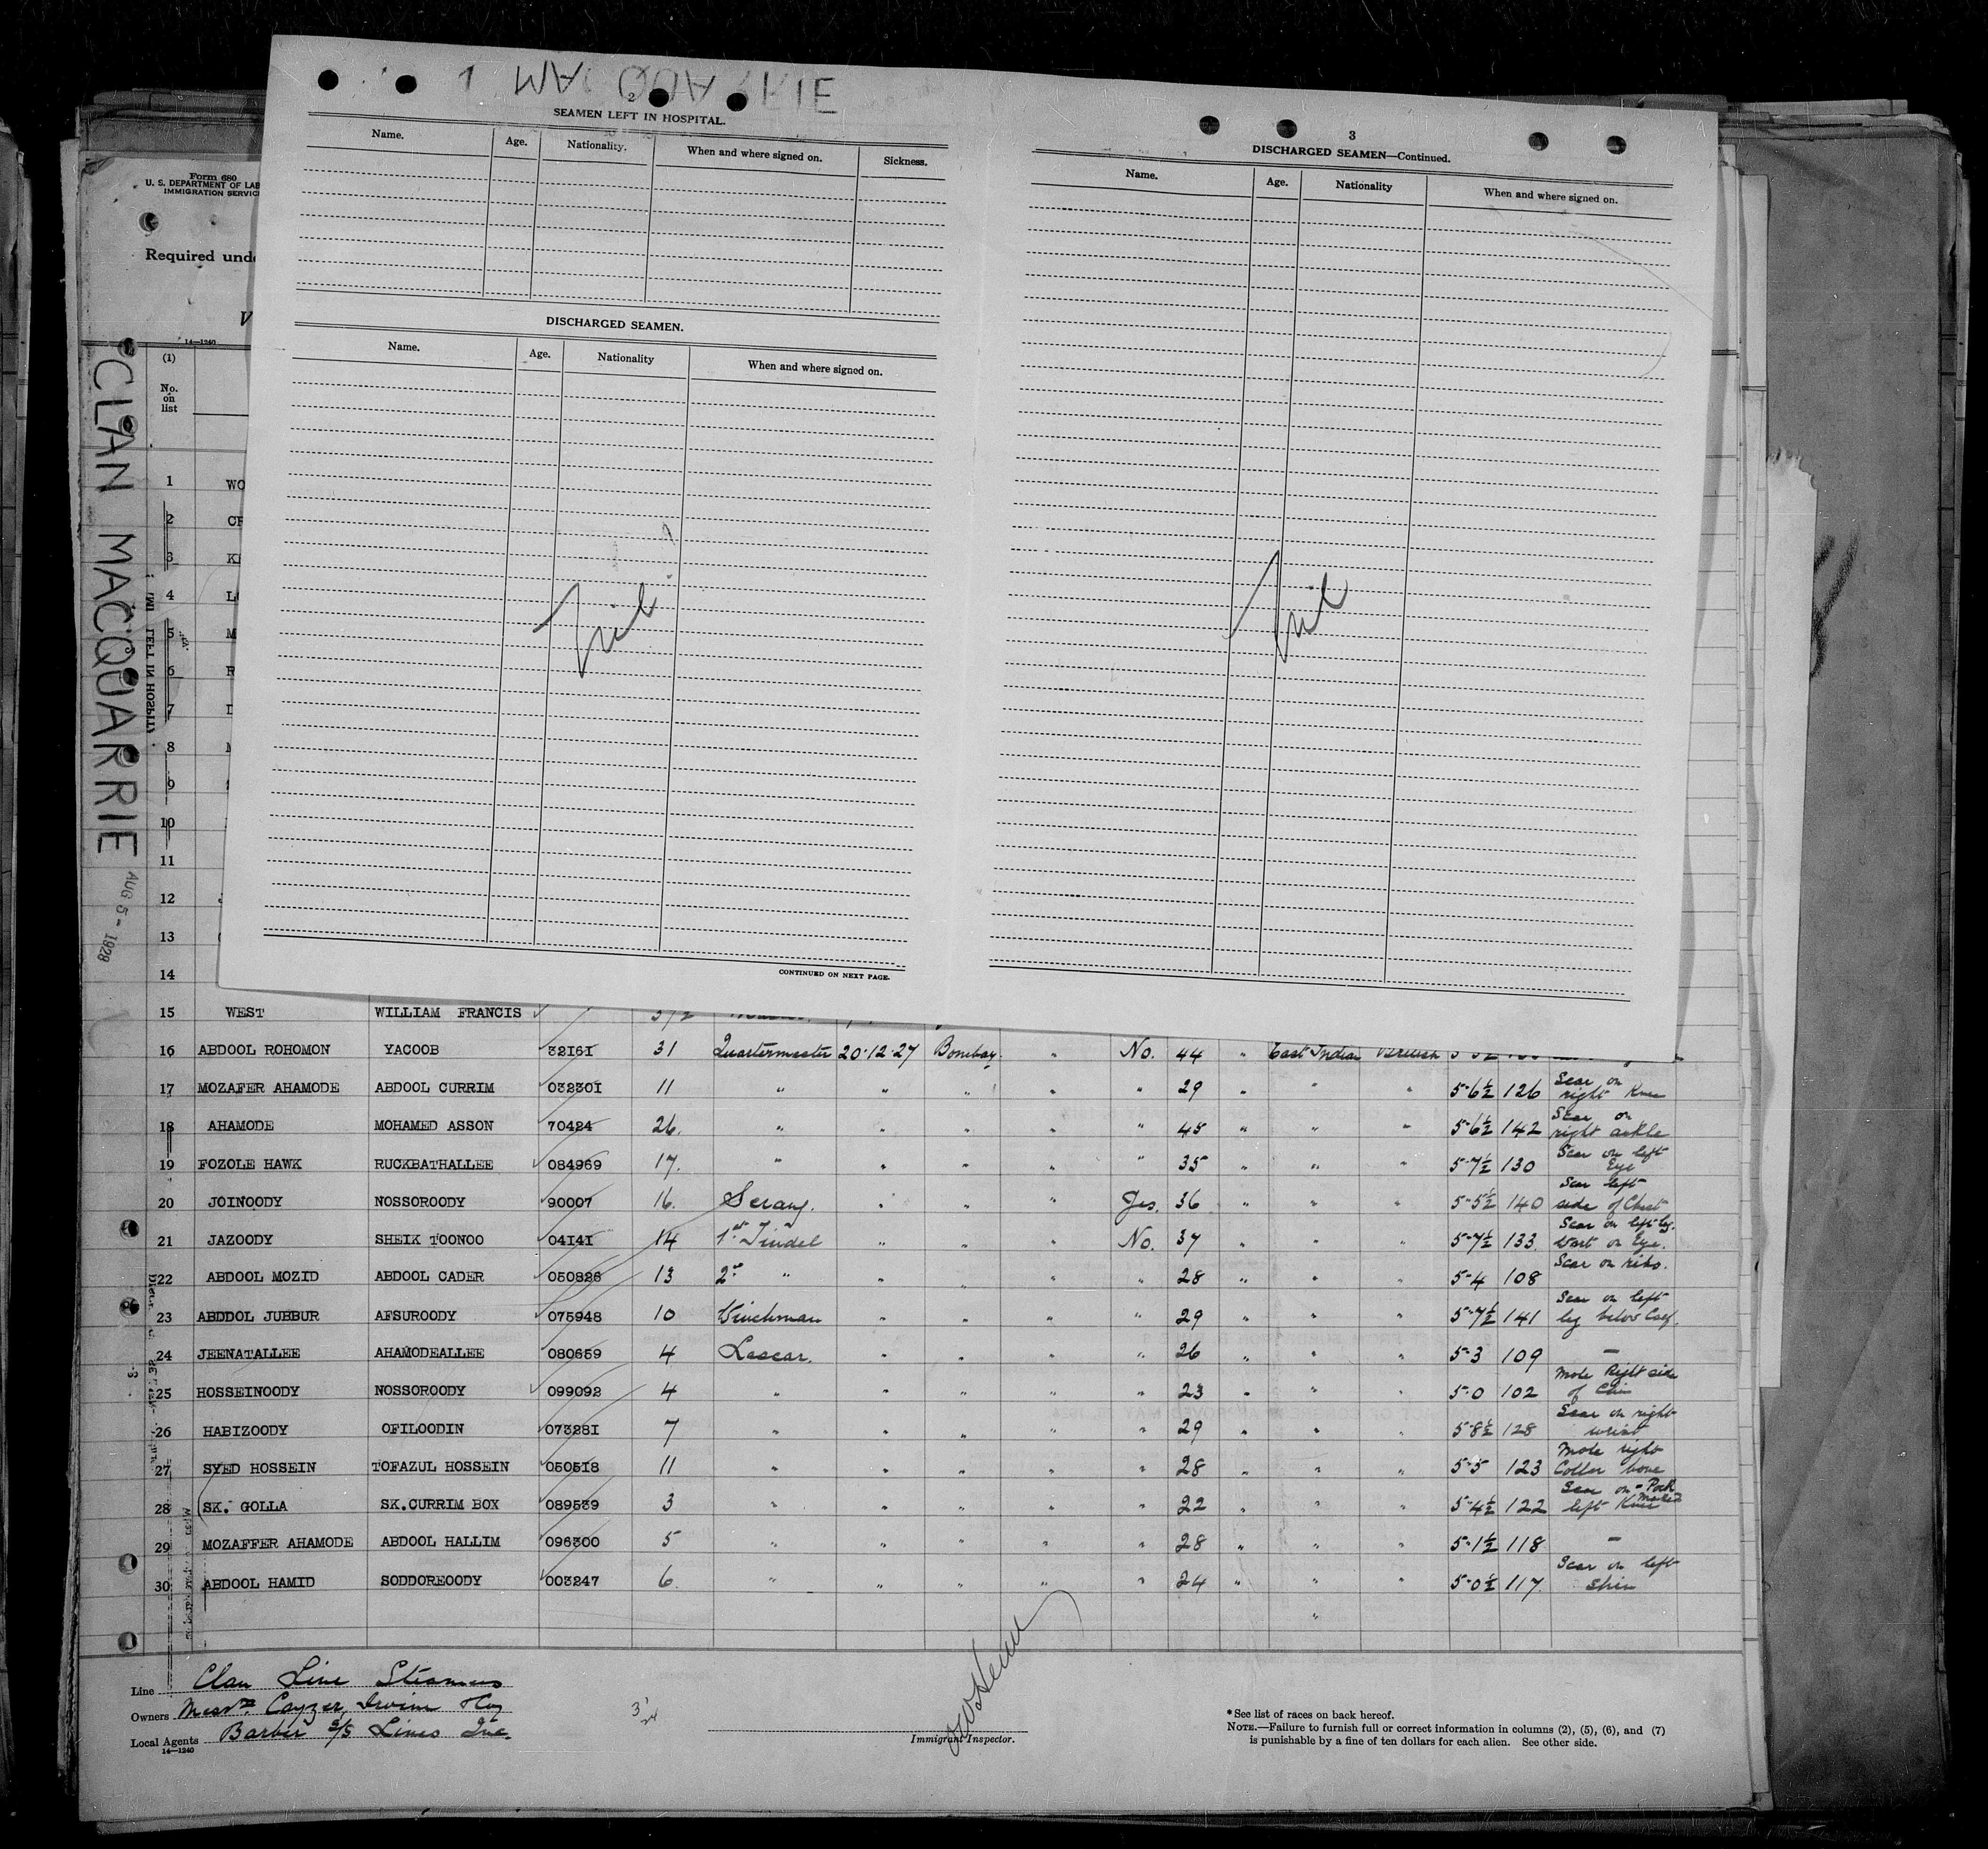 MACQUARRIE
2
SEAMEN LEFT IN HOSPITAL.
Name. Age. Nationality. When and where signed on. Sickness.
DISCHARGED SEAMEN.
Name. Age. Nationality When and where signed on.
Nil
CONTINUED ON NEXT PAGE.
3
DISCHARGED SEAMEN—Continued.
Name. Age. Nationality When and where signed on.
Nil
Form 680
U. S. DEPARTMENT OF LAB
IMMIGRATION SERVIC
Required unde
V
14—1240
(1)
No. on list
CLAN MACQUARRIE
AUG 5 - 1928
LEFT IN HOSPITAL
1 WO
2 CR
3 K
4 L
5 M
6 R
7 D
8 M
9
10
11
12 J
13
14
15 WEST WILLIAM FRANCIS
16 ABDOOL ROHOMON YACOOB 32161 31 Quartermaster 20.12.27 Bombay. " No. 44 " East Indian British
17 MOZAFER AHAMODE ABDOOL CURRIM 032301 11 " " " " " 29 " " " 5-6½ 126 Scar on right Knee
18 AHAMODE MOHAMED ASSON 70424 26. " " " " " 45 " " " 5-6½ 142 Scar on right ankle
19 FOZOLE HAWK RUCKBATHALLEE 084969 17. " " " " " 35 " " " 5-7½ 130 Scar on left Eye
20 JOINOODY NOSSOROODY 90007 16. Serang. " " " Yes. 36 " " " 5-5½ 140 Scar left side of Chest
21 JAZOODY SHEIK TOONOO 04141 14 1st Tindel " " " No. 37 " " " 5-7½ 133 Scar on left leg. Wart on Eye.
22 ABDOOL MOZID ABDOOL CADER 050826 13 2nd " " " " " 28 " " " 5-4 108 Scar on ribs.
23 ABDDOL JUBBUR AFSUROODY 075948 10 Winchman " " " " 29 " " " 5-7½ 141 Scar on left leg below Calf.
24 JEENATALLEE AHAMODEALLEE 080659 4 Lascar. " " " " 26 " " " 5-3 109 —
25 HOSSEINOODY NOSSOROODY 099092 4 " " " " " 23 " " " 5-0 102 Mole Right side of Chin
26 HABIZOODY OFILOODIN 073281 7 " " " " " 29 " " " 5-8½ 128 Scar on right wrist
27 SYED HOSSEIN TOFAZUL HOSSEIN 050518 11 " " " " " 28 " " " 5-5 123 Mole right Collar bone
28 SK. GOLLA SK. CURRIM BOX 089539 3 " " " " " 22 " " " 5-4½ 122 Scar on left Knee - Pock Marked
29 MOZAFFER AHAMODE ABDOOL HALLIM 096300 5 " " " " " 28 " " " 5-1½ 118 —
30 ABDOOL HAMID SODDOREOODY 003247 6 " " " " " 24 " " " 5-0½ 117 Scar on left shin
"
Line Clan Line Steamers
Owners Messrs. Cayzer, Irvine & Coy
Local Agents Barber S/S Lines Inc.
14—1240
Immigrant Inspector.
* See list of races on back hereof.
NOTE.—Failure to furnish full or correct information in columns (2), (5), (6), and (7)
is punishable by a fine of ten dollars for each alien. See other side.